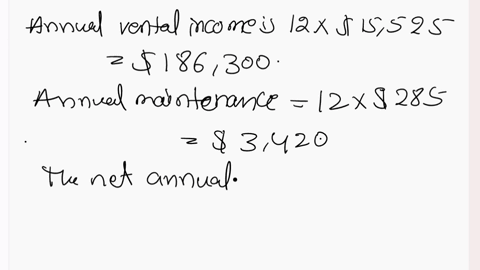 Annual rental income is 12 x $ 15,525
= $ 186,300.
Annual maintenance = 12 x $ 285
= $ 3,420
The net annual.